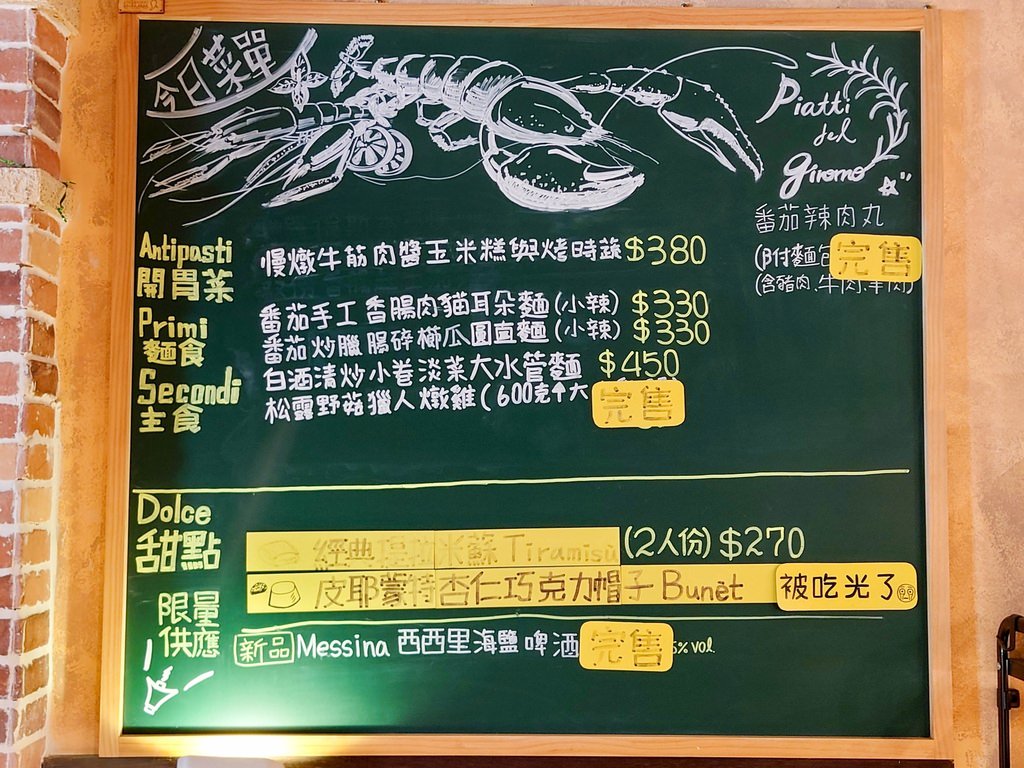 今日菜單
Piatti
del
giorno
番茄辣肉丸
(附麵包 完售
(含豬肉、牛肉、羊肉)
Antipasti
開胃菜
慢燉牛筋肉醬玉米糕與烤時蔬 $380
Primi
麵食
番茄手工香腸肉貓耳朵麵(小辣) $330
番茄炒臘腸碎櫛瓜圓直麵(小辣) $330
白酒清炒小卷淡菜大水管麵 $450
Secondi
主食
松露野菇獵人燉雞(600克 完售
Dolce
甜點
經典 米蘇 Tiramisù (2人份) $270
皮耶蒙特杏仁巧克力帽子 Bunèt 被吃光了
限量
供應
新品 Messina 西西里海鹽啤酒 完售 5% vol.